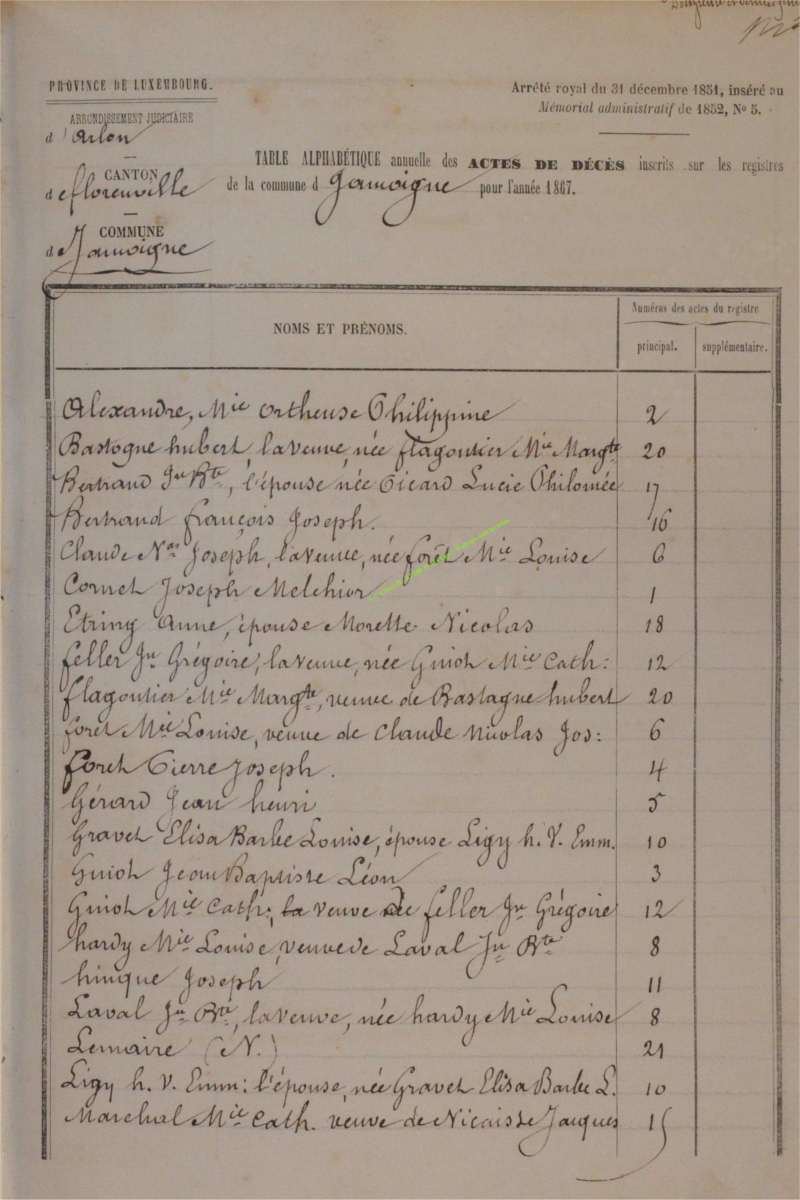 PROVINCE DE LUXEMBOURG.
ARRONDISSEMENT JUDICIAIRE
d'Arlon
CANTON
de florenville
COMMUNE
de Jamoigne
Arrêté royal du 31 décembre 1851, inséré au
Mémorial administratif de 1852, No 5.
TABLE ALPHABÉTIQUE annuelle des ACTES DE DÉCÈS inscrits sur les registres
de la commune d Jamoigne pour l'année 1867.
NOMS ET PRÉNOMS.
Numéros des actes du registre
principal. supplémentaire.
Alexandre, Mie Ortheuse Philippine 2
Bastogne hubert, la veuve, née flagoutier Mie Margte 20
Bertrand Jn Bte, l'épouse née Picard Lucie Philomée 17
Bertrand françois Joseph. 16
Claude Nas Joseph, la veuve, née forêt Mie Louise 6
Cornet Joseph Melchior 1
Etring Anne, épouse Morette Nicolas 18
feller Jn Grégoire, la veuve, née Guiot Mie Cath: 12
flagoutier Mie Margte, veuve de Bastagne hubert 20
foret Mie Louise, veuve de Claude Nicolas Jos: 6
foret Pierre Joseph. 4
Gérard Jean henri 5
Gravet Elisa Barbe Louise, épouse Ligy h. V. Emm. 10
Guiot Jean Baptiste Léon 3
Guiot Mie Cath:, la veuve de feller Jn Grégoire 12
hardy Mie Louise, veuve de Laval Jn Bte 8
hinque Joseph 11
Laval Jn Bte, la veuve, née hardy Mie Louise 8
Lemaire (N.) 21
Ligy h. V. Emm: l'épouse, née Gravet Elisa Barbe L. 10
Marchal Mie Cath. veuve de Nicaisse Jacques 15